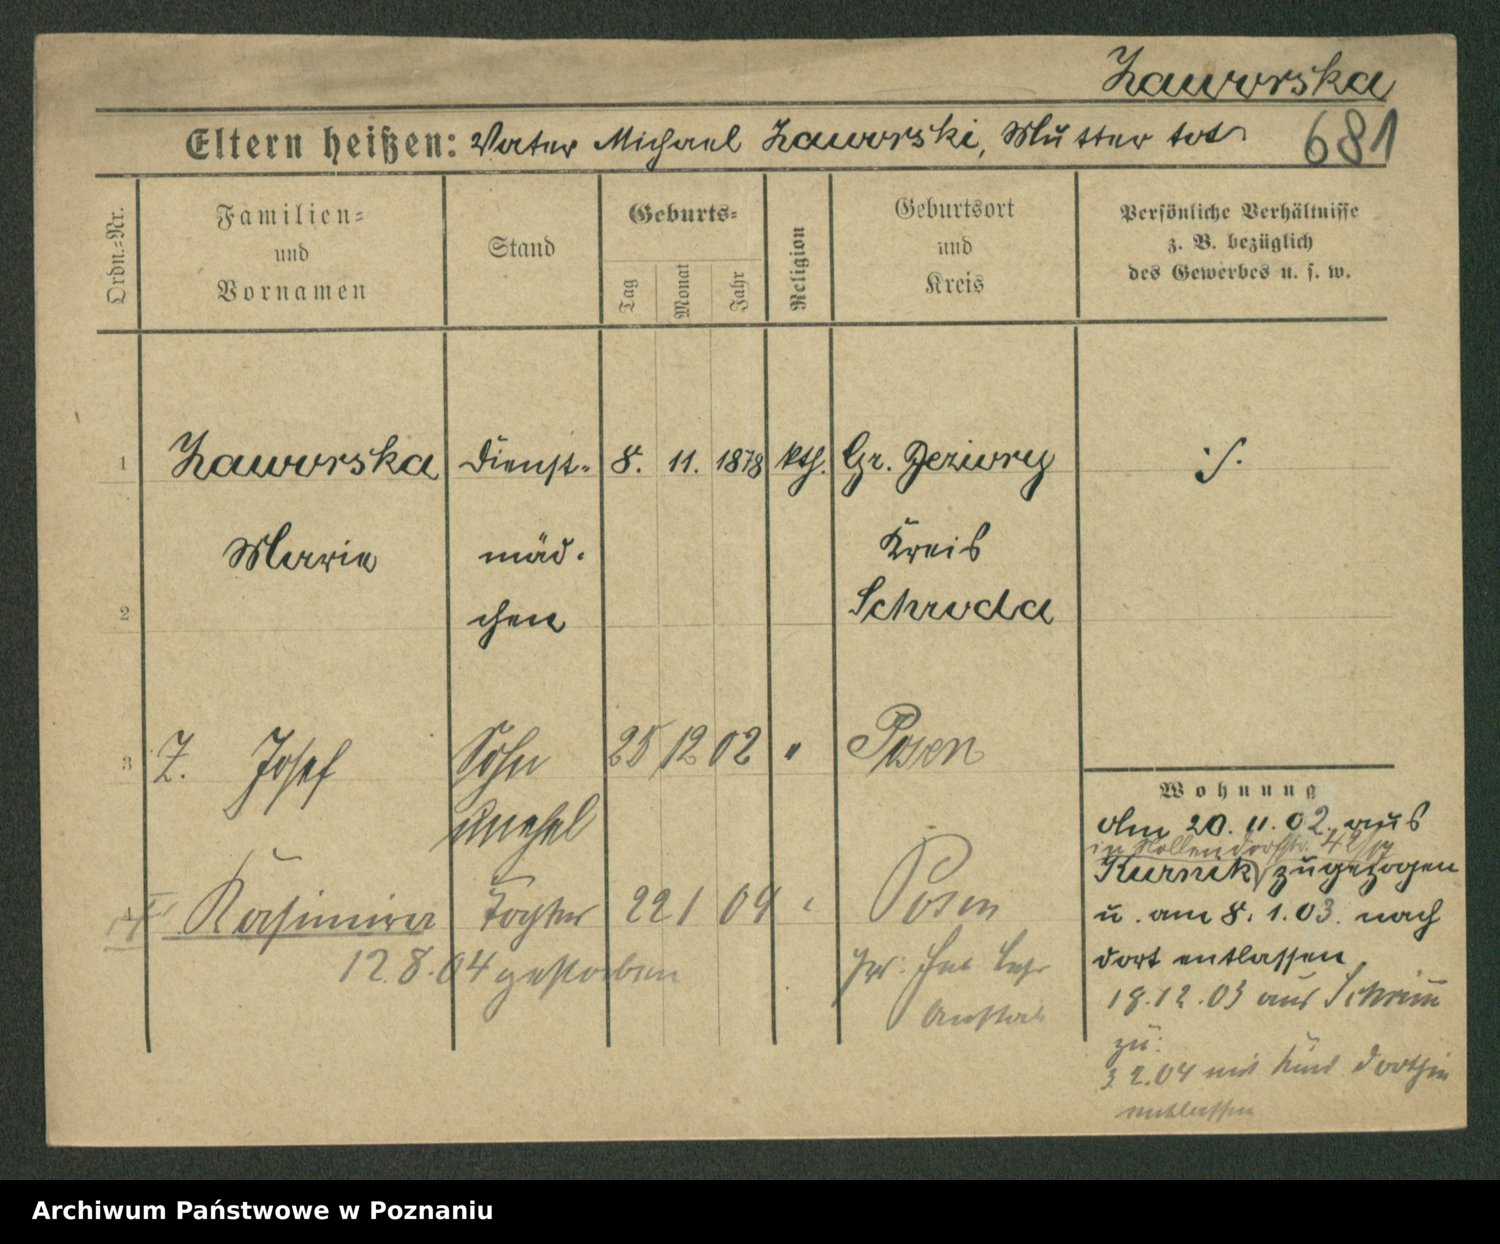 Zaworska
Eltern heißen: Vater Michael Zaworski, Mutter tot 681
Ordn.-Nr.
Familien-
und
Vornamen
Stand
Geburts-
Tag
Monat
Jahr
Religion
Geburtsort
und
Kreis
Persönliche Verhältnisse
z. B. bezüglich
des Gewerbes u. s. w.
1 Zaworska Dienst- 8. 11. 1878 kth. Gr.
Marie mäd- Kreis
2 chen Schroda
3 Z. Josef Sohn 25 12 02 " Posen
unehel
Kasimira Tochter 22 1 04 " Posen
12.8.04 gestorben
Wohnung
Am 20. 11. 02. aus
in Nollendorfstr.
Kurnik zugezogen
u. am 8. 1. 03. nach
dort entlassen
18.12.03 aus Schrimm
zu.
3 2.04 mit Kind dorthin
entlassen
Archiwum Państwowe w Poznaniu